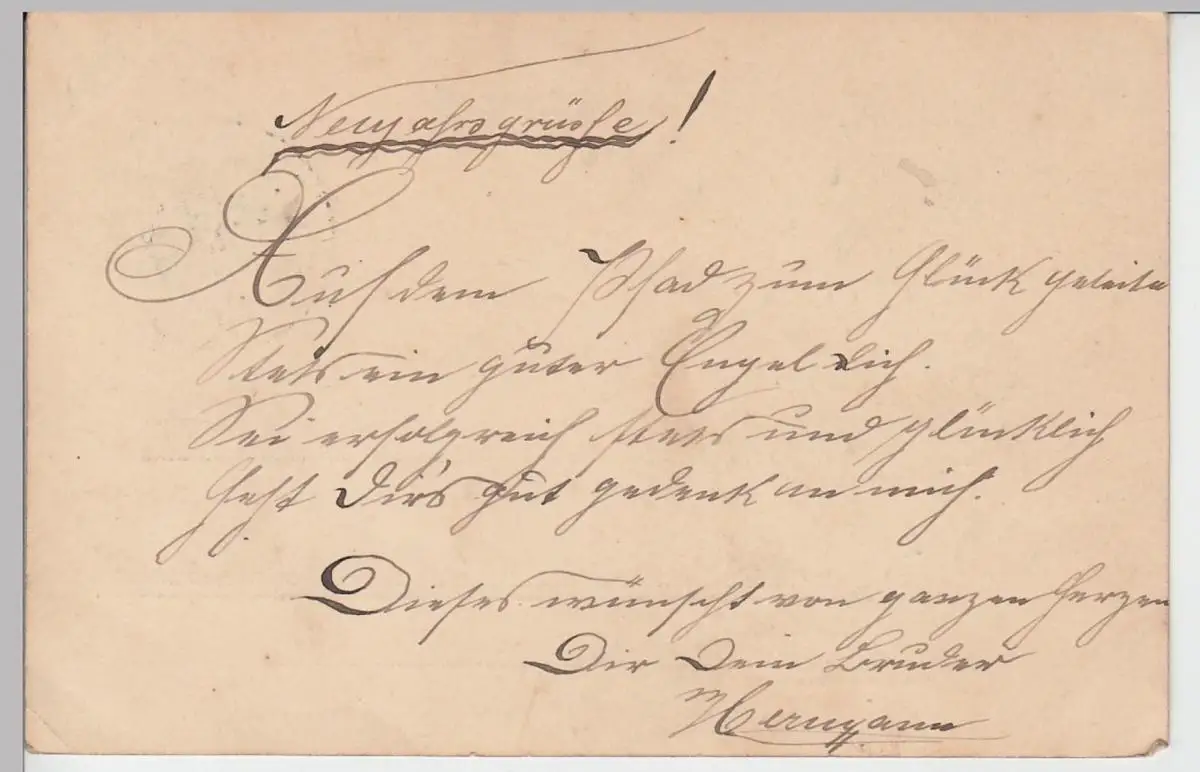 Neujahrsgrüsse!
Auf dem Pfad zum Glück geleite
Stets ein guter Engel Dich.
Sei erfolgreich stets und glücklich
Geht Dir's gut gedenk an mich.
Dieses wünscht von ganzen Herzen
Dir Dein Bruder
Hermann